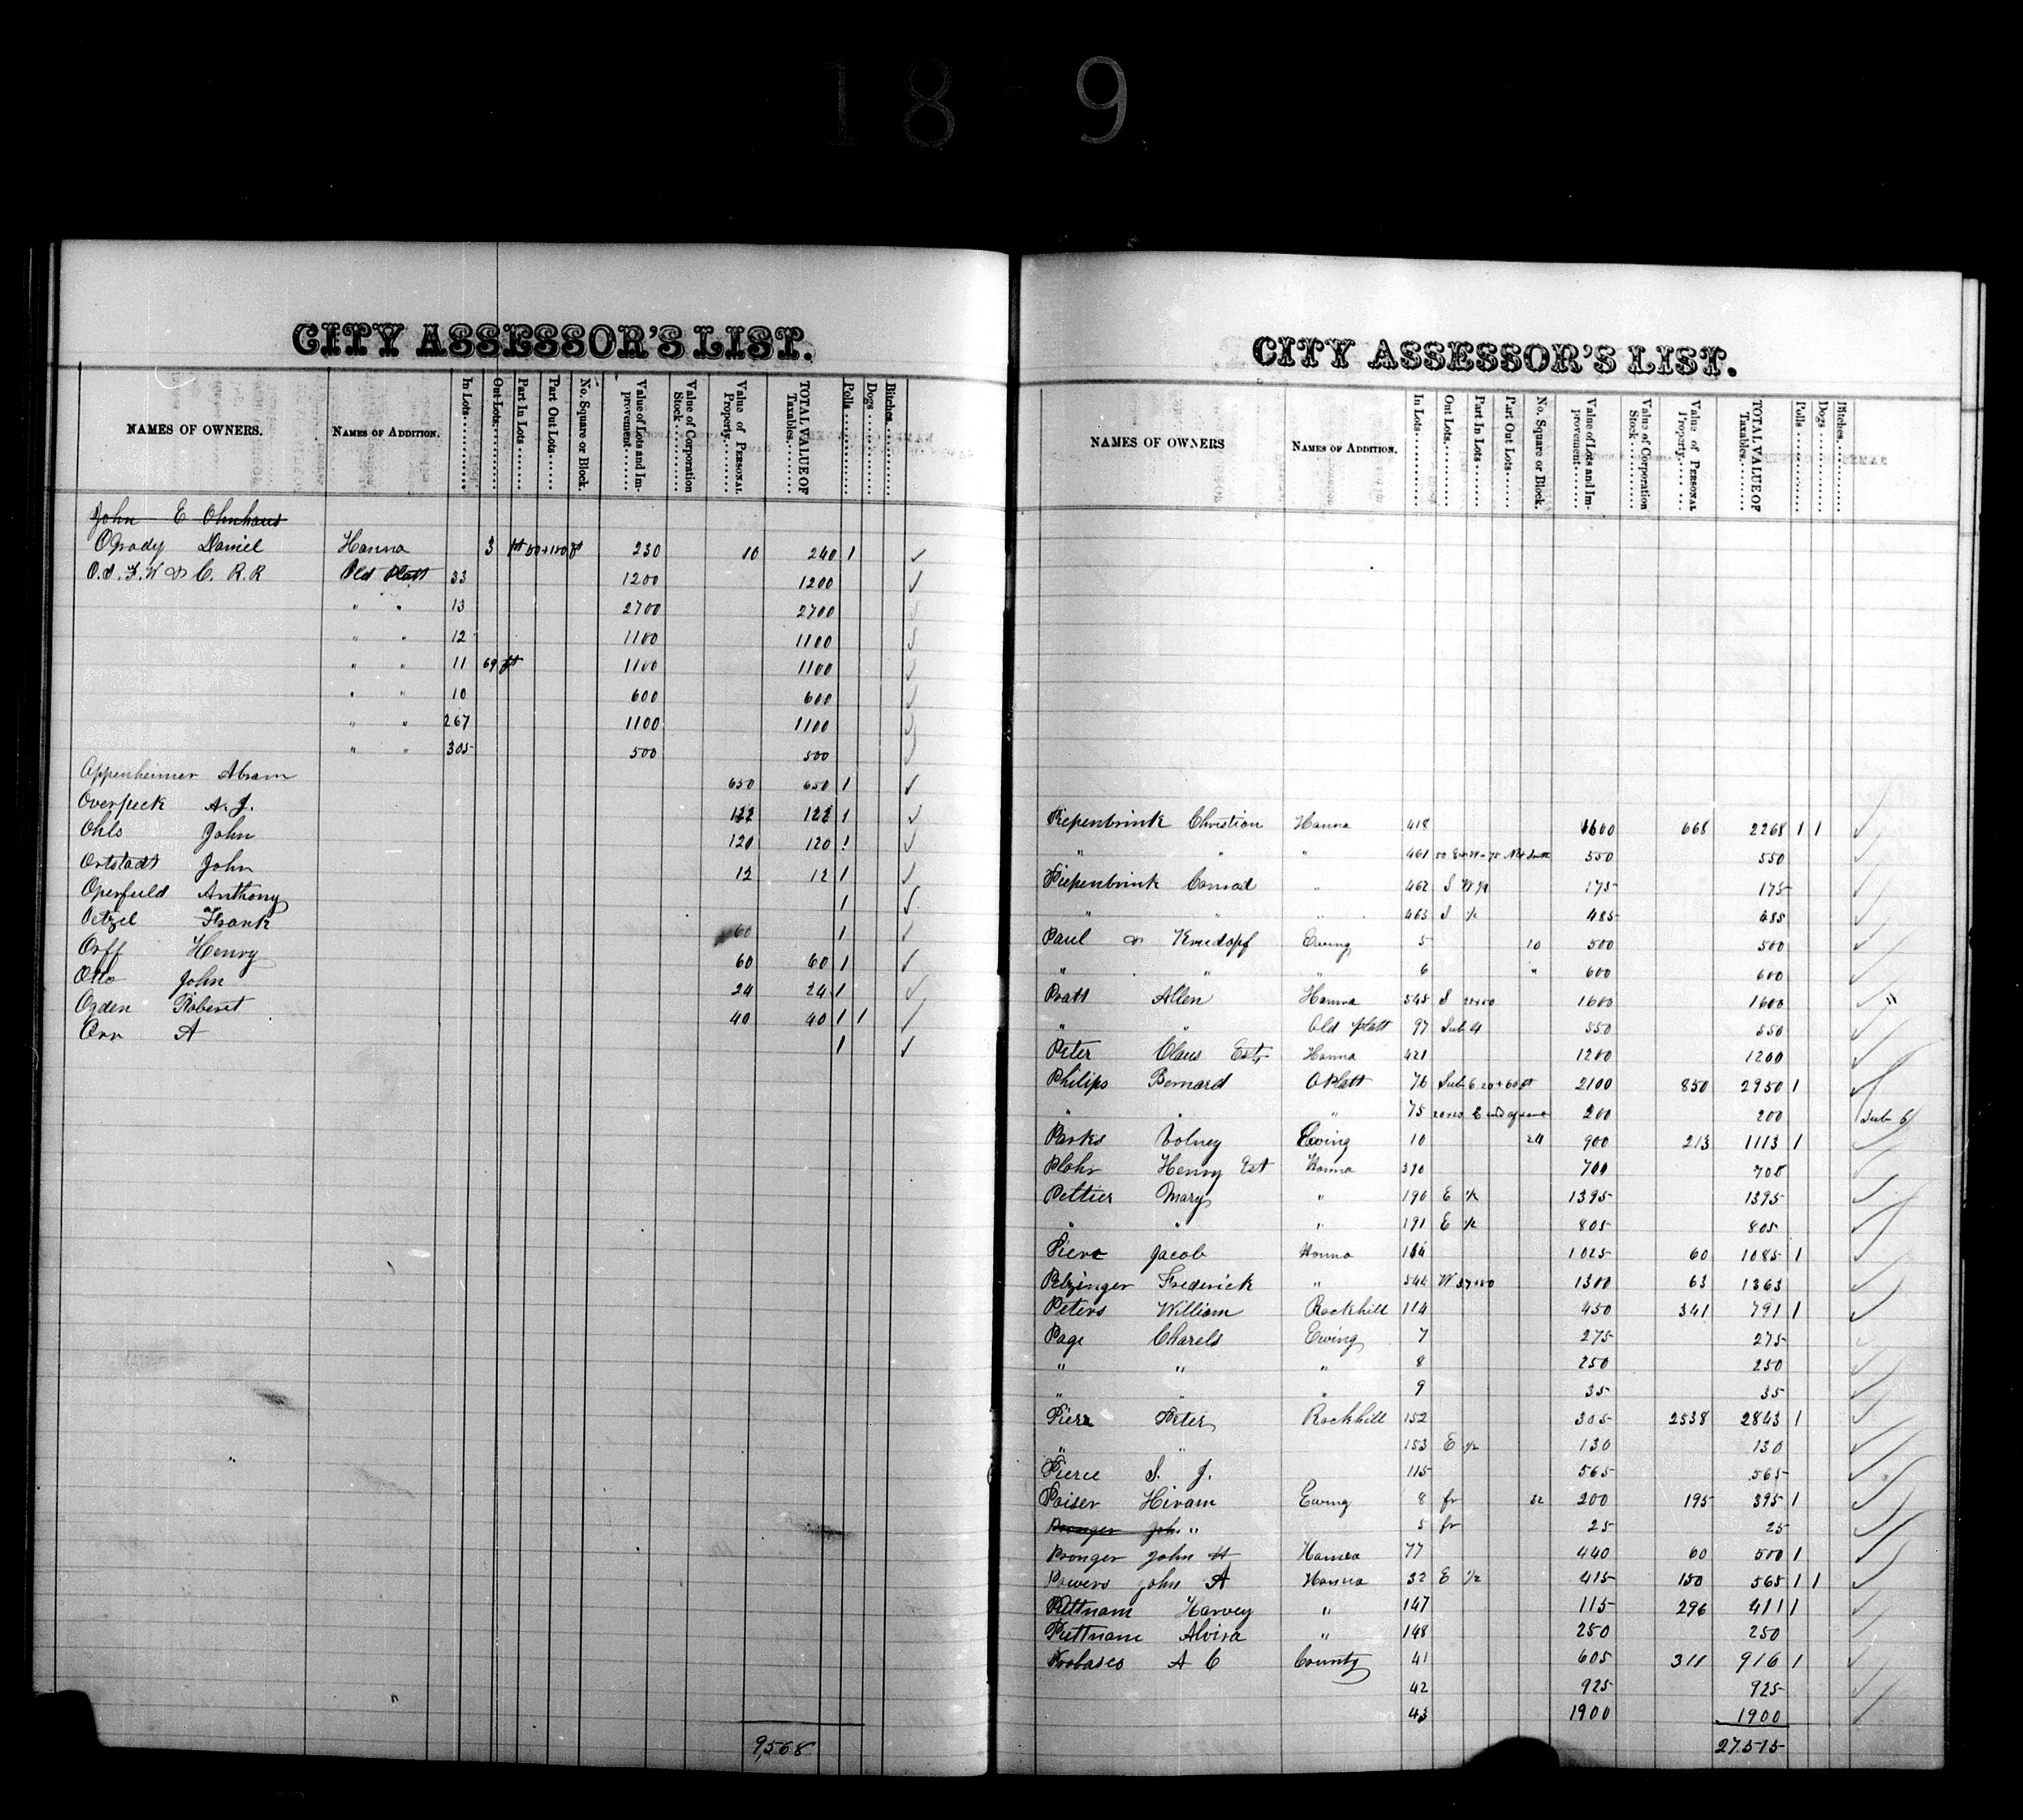 18 9
CITY ASSESSOR'S LIST.
NAMES OF OWNERS. NAMES OF ADDITION. In Lots Out Lots Part In Lots Part Out Lots No. Square or Block. Value of Lots and Improvement Value of Corporation Stock Value of PERSONAL Property. TOTAL VALUE OF Taxables. Polls Dogs Bitches.
John E Ohnhaus
OGrady Daniel Hanna 3 pt 50+150 ft 230 10 240 1 ✓
C. R.R Old Platt 33 1200 1200 ✓
" " 13 2700 2700 ✓
" " 12 1100 1100 ✓
" " 11 69 ft 1100 1100 ✓
" " 10 600 600 ✓
" " 267 1100 1100 ✓
" " 305 500 500 ✓
Oppenheimer Abram 650 650 1 ✓
Overpeck A. J. 122 122 1 ✓
Ohls John 120 120 1 ✓
Ortstadt John 12 12 1 ✓
Operfield Anthony 1 ✓
Oetzel Frank 60 1 ✓
Orff Henry 60 60 1 ✓
Otto John 24 24 1 ✓
Ogden Roberet 40 40 1 1 ✓
Orr A 1 ✓
9,568
CITY ASSESSOR'S LIST.
NAMES OF OWNERS NAMES OF ADDITION. In Lots Out Lots Part In Lots Part Out Lots No. Square or Block. Value of Lots and Improvement Value of Corporation Stock Value of PERSONAL Property. TOTAL VALUE OF Taxables. Polls Dogs Bitches.
Piepenbrink Christion Hanna 418 1600 668 2268 1 1 ✓
" " " 461 550 550 ✓
Piepenbrink Conrad " 462 S W ¼ 175 175 ✓
" " " 463 S ½ 485 485 ✓
Paul & Ewing 5 10 500 500 ✓
" " " 6 " 600 600 ✓
Pratt Allen Hanna 545 S 1600 1600 ✓ "
" " Old Platt 97 Sub 4 550 550 ✓
Peter Claus Est Hanna 421 1200 1200 ✓
Philips Bernard O Platt 76 Sub 6 20+60 ft 2100 850 2950 1 ✓
" " " 75 E end of 200 200 Sub 6
Parks Volney Ewing 10 24 900 213 1113 1 ✓
Plohr Henry Est Hanna 390 700 700 ✓
Peltier Mary " 190 E ½ 1395 1395 ✓
" " " 191 E ½ 805 805 ✓
Pierc Jacob Hanna 134 1025 60 1085 1 ✓
Pelzinger Frederick " 544 W 37+50 1300 63 1363 ✓
Peters William Rockhill 114 450 341 791 1 ✓
Page Charels Ewing 7 275 275 ✓
" " " 8 250 250 ✓
" " " 9 35 35 ✓
Pierr Peter Rockhill 152 305 2538 2843 1 ✓
" " 153 E ½ 130 130 ✓
Pierce S. J. 115 565 565 ✓
Paiser Hiram Ewing 8 fr 32 200 195 395 1 ✓
Pronger John " 5 fr 25 25 ✓
Pronger John H Hanna 77 440 60 500 1 ✓
Powers John A Hanna 32 E ½ 415 150 565 1 1 ✓
Puttnam Harvey " 147 115 296 411 1 ✓
Puttnam Alvira " 148 250 250 ✓
Probasco A C County 41 605 311 916 1 ✓
42 925 925 ✓
43 1900 1900 ✓
27.515